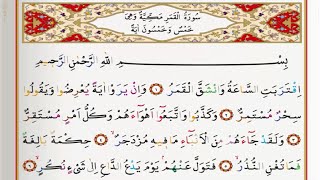 سُورَةُ الْقَمَرِ مَكِّيَّةٌ وَهِيَ
خَمْسٌ وَخَمْسُونَ اٰيَةً
بِسْمِ اللّٰهِ الرَّحْمٰنِ الرَّحِيمِ
اِقْتَرَبَتِ السَّاعَةُ وَانْشَقَّ الْقَمَرُ ﴿١﴾ وَاِنْ يَرَوْا اٰيَةً يُعْرِضُوا وَيَقُولُوا
سِحْرٌ مُسْتَمِرٌّ ﴿٢﴾ وَكَذَّبُوا وَاتَّبَعُوا اَهْوَٓاءَهُمْ وَكُلُّ اَمْرٍ مُسْتَقِرٌّ
﴿٣﴾ وَلَقَدْ جَٓاءَهُمْ مِنَ الْاَنْبَٓاءِ مَا فِيهِ مُزْدَجَرٌ ﴿٤﴾ حِكْمَةٌ بَالِغَةٌ
فَمَا تُغْنِ النُّذُرُ ﴿٥﴾ فَتَوَلَّ عَنْهُمْ يَوْمَ يَدْعُ الدَّاعِ اِلٰى شَيْءٍ نُكُرٍ ﴿٦﴾